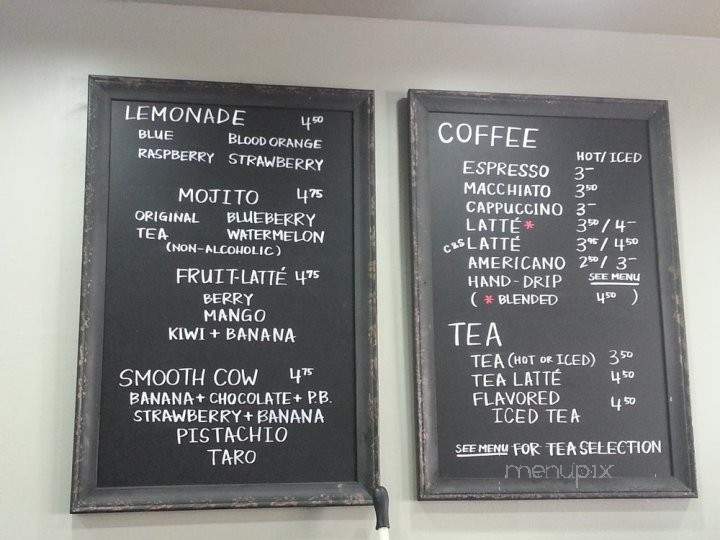 LEMONADE 4.50
BLUE BLOOD ORANGE
RASPBERRY STRAWBERRY
MOJITO 4.75
ORIGINAL BLUEBERRY
TEA WATERMELON
(NON-ALCOHOLIC)
FRUIT-LATTÉ 4.75
BERRY
MANGO
KIWI + BANANA
SMOOTH COW 4.75
BANANA + CHOCOLATE + P.B.
STRAWBERRY + BANANA
PISTACHIO
TARO
COFFEE
HOT/ICED
ESPRESSO 3-
MACCHIATO 3.50
CAPPUCCINO 3-
LATTÉ * 3.50 / 4-
C&S LATTÉ 3.95 / 4.50
AMERICANO 2.50 / 3-
HAND-DRIP SEE MENU
( * BLENDED 4.50 )
TEA
TEA (HOT OR ICED) 3.50
TEA LATTÉ 4.50
FLAVORED
ICED TEA 4.50
SEE MENU FOR TEA SELECTION
menupix